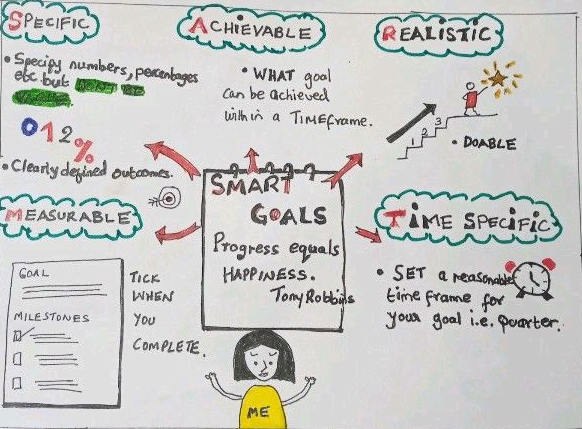 SPECIFIC
• Specify numbers, percentages
etc but
012%
• Clearly defined outcomes.
ACHIEVABLE
• WHAT goal
can be achieved
within a TIMEframe.
REALISTIC
1 2 3
• DOABLE
MEASURABLE
GOAL
MILESTONES
TICK
WHEN
YOU
COMPLETE.
SMART
GOALS
Progress equals
HAPPINESS.
Tony Robbins
TIME SPECIFIC
• SET a reasonable
time frame for
your goal i.e. Quarter.
ME